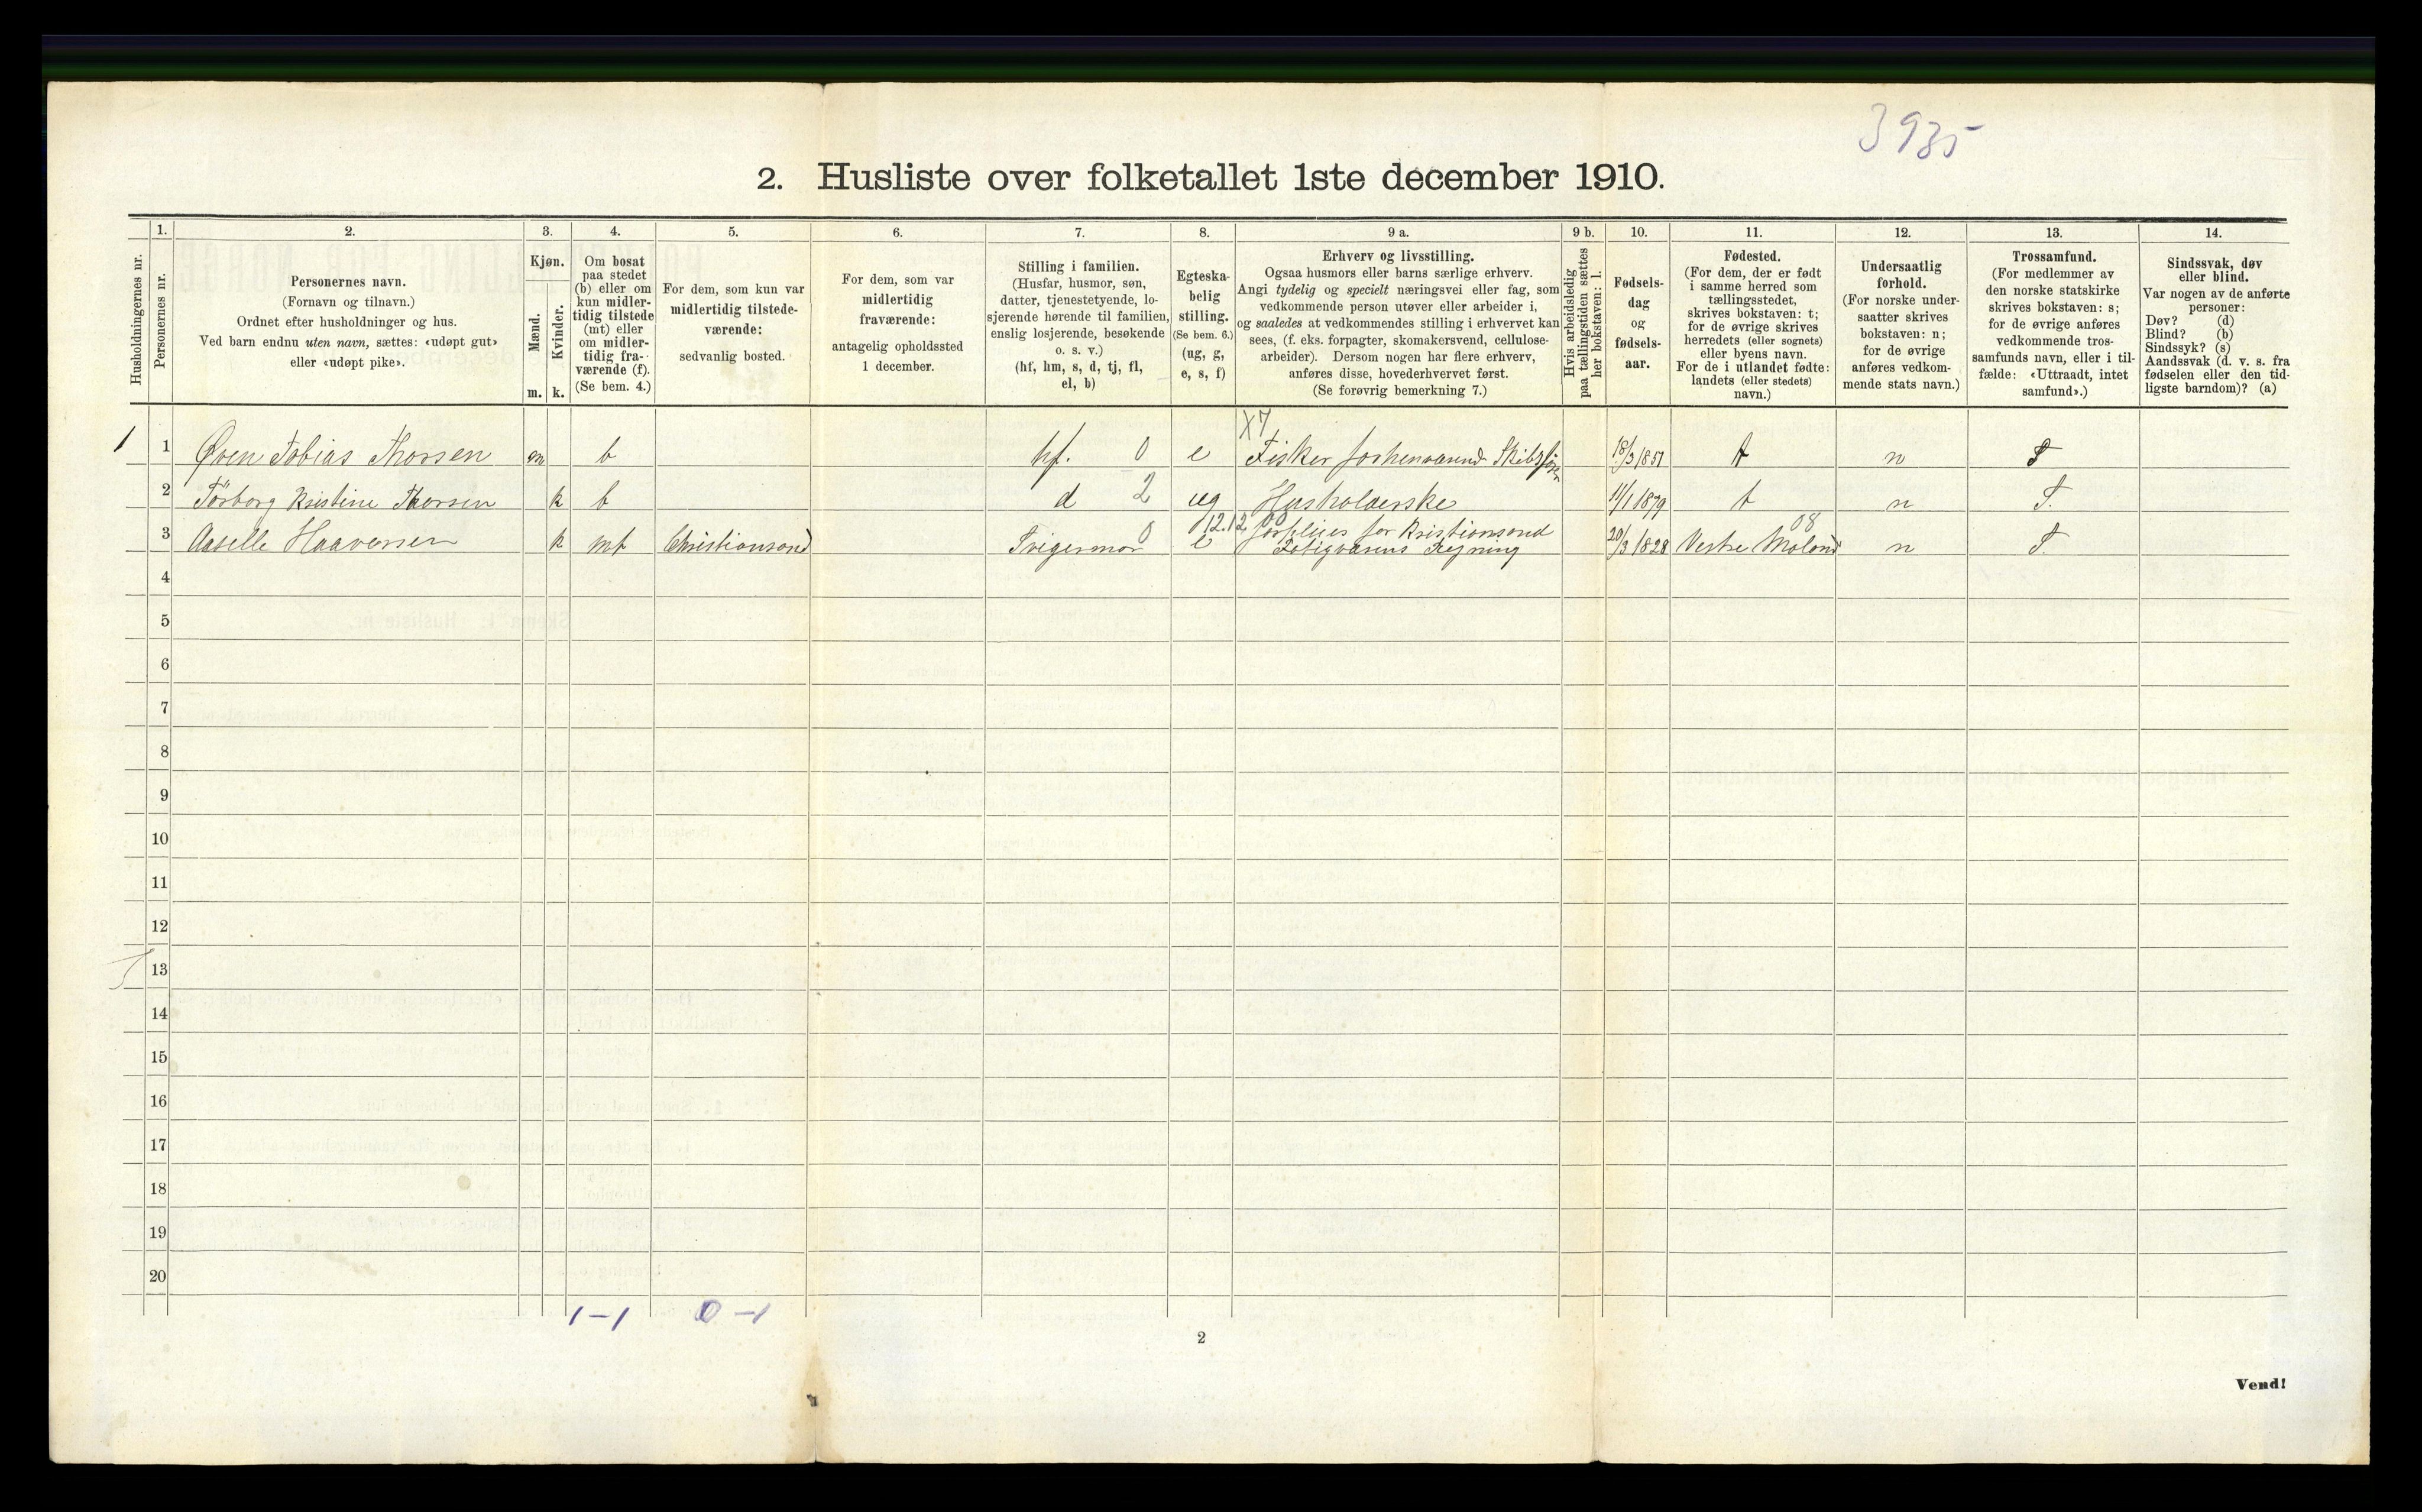 3935
2. Husliste over folketallet 1ste december 1910.
Husholdningernes nr.
1.
Personernes nr.
2.
Personernes navn.
(Fornavn og tilnavn.)
Ordnet efter husholdninger og hus.
Ved barn endnu uten navn, sættes: «udøpt gut»
eller «udøpt pike».
3.
Kjøn.
Mænd.
Kvinder.
m. k.
4.
Om bosat
paa stedet
(b) eller om
kun midler-
tidig tilstede
(mt) eller
om midler-
tidig fra-
værende (f).
(Se bem. 4.)
5.
For dem, som kun var
midlertidig tilstede-
værende:
sedvanlig bosted.
6.
For dem, som var
midlertidig
fraværende:
antagelig opholdssted
1 december.
7.
Stilling i familien.
(Husfar, husmor, søn,
datter, tjenestetyende, lo-
sjerende hørende til familien,
enslig losjerende, besøkende
o. s. v.)
(hf, hm, s, d, tj, fl,
el, b)
8.
Egteska-
belig
stilling.
(Se bem. 6.)
(ug, g,
e, s, f)
9 a.
Erhverv og livsstilling.
Ogsaa husmors eller barns særlige erhverv.
Angi tydelig og specielt næringsvei eller fag, som
vedkommende person utøver eller arbeider i,
og saaledes at vedkommendes stilling i erhvervet kan
sees, (f. eks. forpagter, skomakersvend, cellulose-
arbeider). Dersom nogen har flere erhverv,
anføres disse, hovederhvervet først.
(Se forøvrig bemerkning 7.)
9 b.
Hvis arbeidsledig
paa tællingstiden sættes
her bokstaven: l.
10.
Fødsels-
dag
og
fødsels-
aar.
11.
Fødested.
(For dem, der er født
i samme herred som
tællingsstedet,
skrives bokstaven: t;
for de øvrige skrives
herredets (eller sognets)
eller byens navn.
For de i utlandet fødte:
landets (eller stedets)
navn.)
12.
Undersaatlig
forhold.
(For norske under-
saatter skrives
bokstaven: n;
for de øvrige
anføres vedkom-
mende stats navn.)
13.
Trossamfund.
(For medlemmer av
den norske statskirke
skrives bokstaven: s;
for de øvrige anføres
vedkommende tros-
samfunds navn, eller i til-
fælde: «Uttraadt, intet
samfund».)
14.
Sindssvak, døv
eller blind.
Var nogen av de anførte
personer:
Døv? (d)
Blind? (b)
Sindssyk? (s)
Aandssvak (d. v. s. fra
fødselen eller den tid-
ligste barndom)? (a)
X7
1 1 Øven Tobias Thorsen m b hf. 0 e Fisker forhenværend 18/3 1851 t n S
2 Torborg Kristine Thorsen k b d 2 ug Husholderske 11/1 1879 t n S.
12.12 08
3 Aaselle Haaversen k mt Christiansand Svigermor 0 e forpleies for Kristiansand 20/3 1828 Vestre Moland n S.
Fatigvæsens Regning
4
5
6
7
8
9
10
11
12
13
14
15
16
17
18
19
20
1-1 0-1
2
Vend!